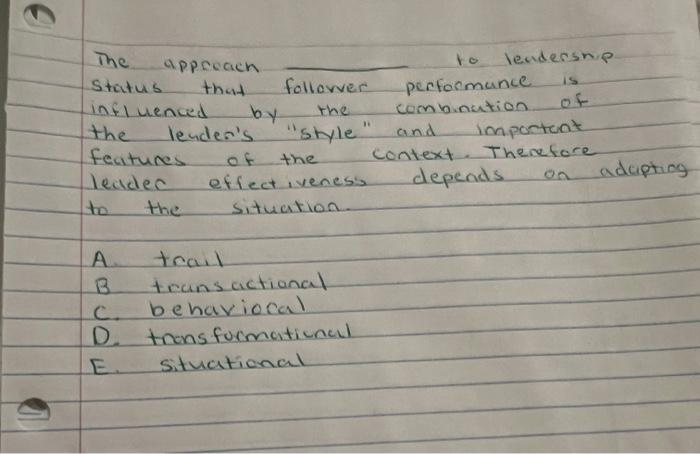 The approach ________ to leadership
status that follower performance is
influenced by the combination of
the leader's "style" and important
features of the context. Therefore
leader effectiveness depends on adapting
to the situation.
A. trail
B transactional
C. behavioral
D. transformational
E. situational